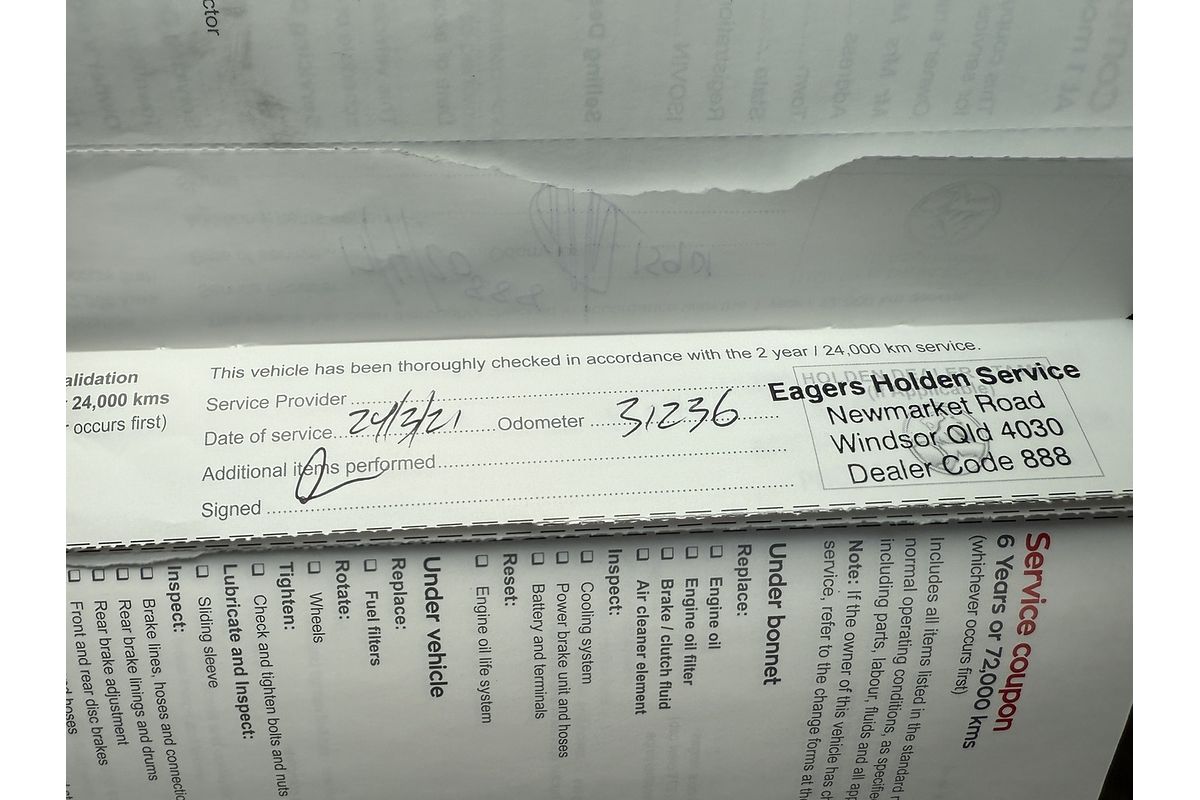 ctor
alidation
24,000 kms
occurs first)
This vehicle has been thoroughly checked in accordance with the 2 year / 24,000 km service.
Service Provider
Date of service 24/3/21 Odometer 31236
Additional items performed
Signed
HOLDEN DEALER
Eagers Holden Service
Newmarket Road
Windsor Qld 4030
Dealer Code 888
Service coupon
6 Years or 72,000 kms
(whichever occurs first)
Includes all items listed in the standard
normal operating conditions, as specifie
including parts, labour, fluids and all app
Note: If the owner of this vehicle has c
service, refer to the change forms at th
Under bonnet
Replace:
☐ Engine oil
☐ Engine oil filter
☐ Brake / clutch fluid
☐ Air cleaner element
Inspect:
☐ Cooling system
☐ Power brake unit and hoses
☐ Battery and terminals
Reset:
☐ Engine oil life system
Under vehicle
Replace:
☐ Fuel filters
Rotate:
☐ Wheels
Tighten:
☐ Check and tighten bolts and nuts
Lubricate and Inspect:
☐ Sliding sleeve
Inspect:
☐ Brake lines, hoses and connectio
☐ Rear brake linings and drums
☐ Rear brake adjustment
☐ Front and rear disc brakes
hoses